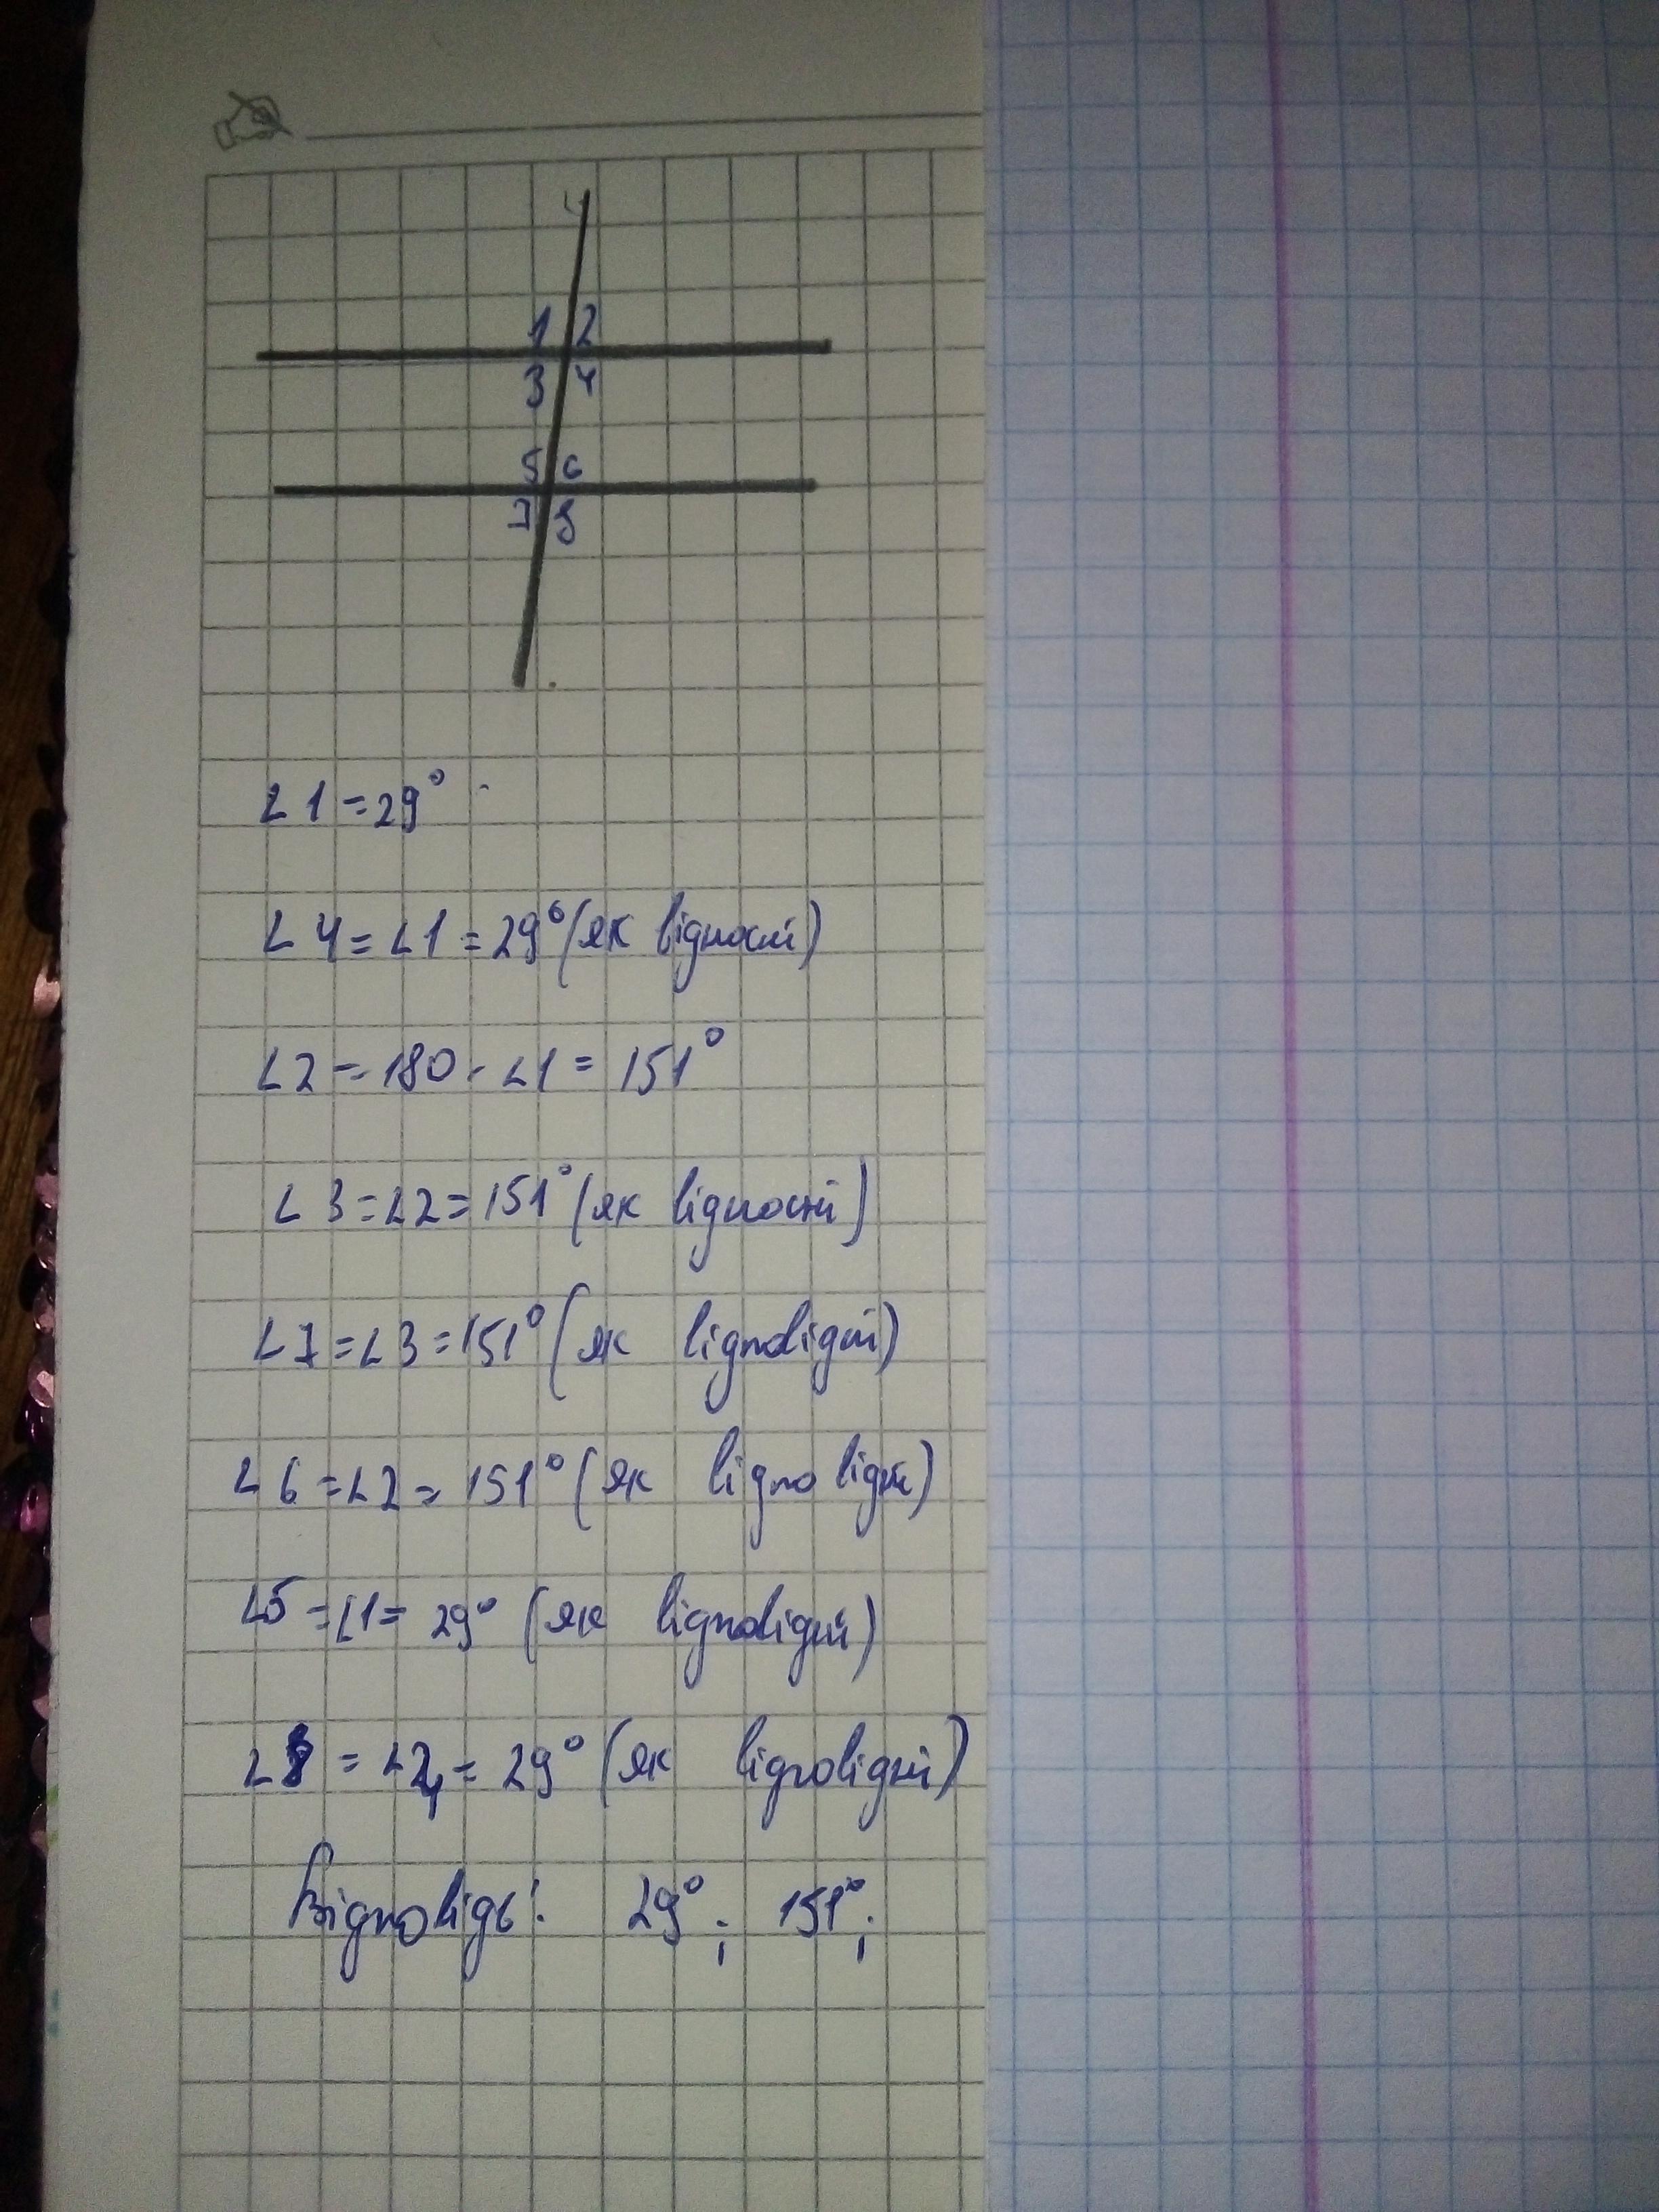 1 2
3 4
5 6
7 8
∠1=29°
∠4=∠1=29° (як відност)
∠2=180-∠1=151°
∠3=∠2=151° (як відносні)
∠7=∠3=151° (як відповідні)
∠6=∠2=151° (як відповідні)
∠5=∠1=29° (як відповідні)
∠8=∠4=29° (як відповідні)
Відповідь: 29°; 151°;